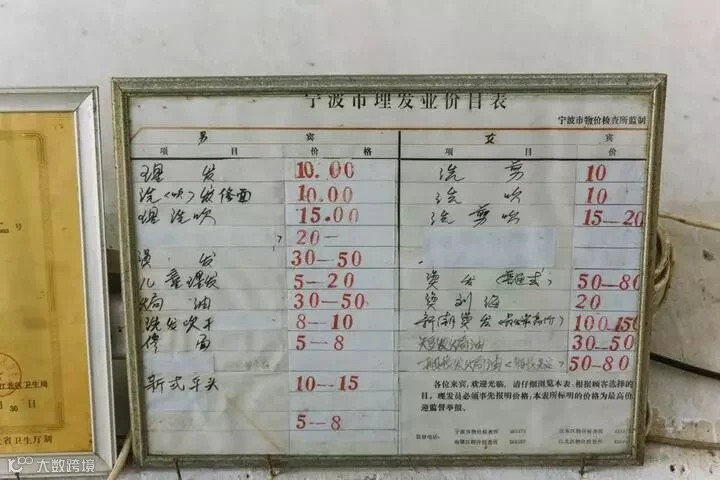 宁波市理发业价目表
宁波市物价检查所监制
男 宾
项 目 价 格
理 发 10.00
洗(吹)发修面 10.00
理洗吹 15.00
20—
烫 发 30—50
儿童理发 5—20
焗 油 30—50
洗发吹干 8—10
修 面 5—8
新式平头 10—15
5—8
女 宾
项 目 价
洗 剪 10
洗 吹 10
洗剪吹 15—20
烫发(普通式) 50—80
烫刘海 20
新潮烫发 100—150
短发焗油 30—50
焗油 50—80
各位来宾,欢迎光临,请仔细浏览本表,根据顾客选择的
目,理发员必须事先报明价格,本表所标明的价格为最高价
迎监督举报。
监督电话:
宁波市物价检查所
海曙区物价检查所
江东区物价检查所
江北区物价检查所
号
江北区卫生局
30 日
省卫生厅制
大数跨境